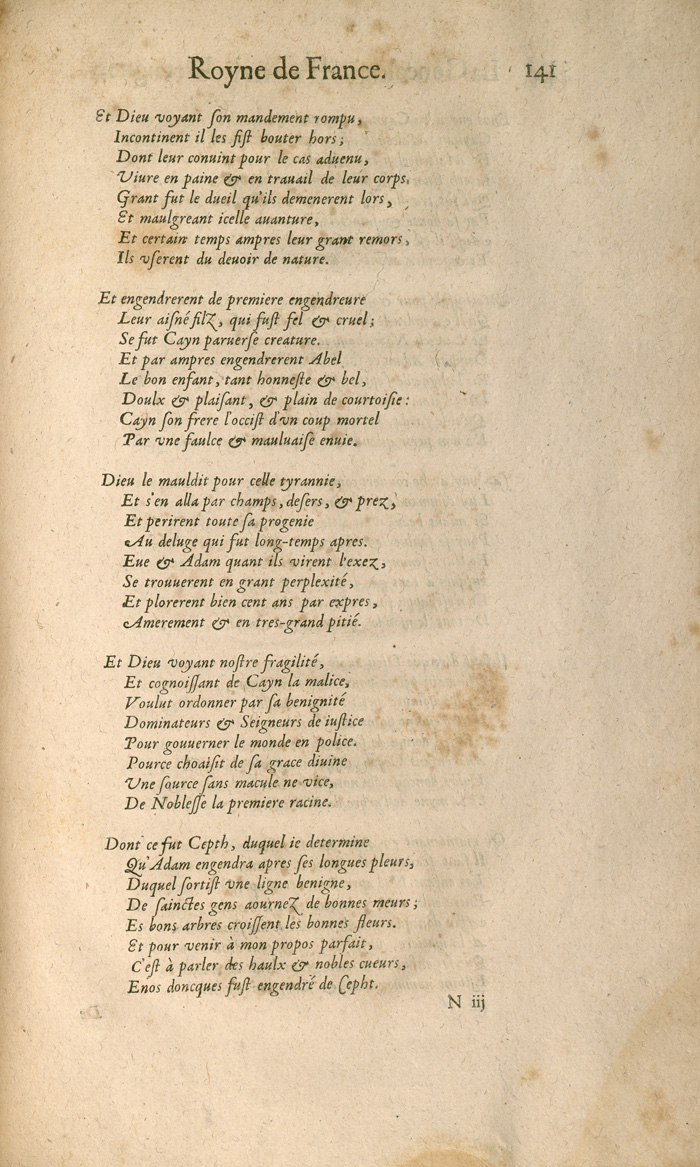 Royne de France. 141
Et Dieu voyant ſon mandement rompu,
Incontinent il les fiſt bouter hors;
Dont leur conuint pour le cas aduenu,
Viure en paine & en trauail de leur corps.
Grant fut le dueil qu'ils demenerent lors,
Et maulgreant icelle auanture,
Et certain temps ampres leur grant remors,
Ils vſerent du deuoir de nature.
Et engendrerent de premiere engendreure
Leur aiſné filz, qui fuſt fel & cruel;
Se fut Cayn paruerſe creature.
Et par ampres engendrerent Abel
Le bon enfant, tant honneſte & bel,
Doulx & plaiſant, & plain de courtoiſie:
Cayn ſon frere l'occiſt d'vn coup mortel
Par vne faulce & mauluaiſe enuie.
Dieu le mauldit pour celle tyrannie,
Et s'en alla par champs, deſers, & prez,
Et perirent toute ſa progenie
Au deluge qui fut long-temps apres.
Eue & Adam quant ils virent l'exez,
Se trouuerent en grant perplexité,
Et plorerent bien cent ans par expres,
Amerement & en tres-grand pitié.
Et Dieu voyant noſtre fragilité,
Et cognoiſſant de Cayn la malice,
Voulut ordonner par ſa benignité
Dominateurs & Seigneurs de iuſtice
Pour gouuerner le monde en police.
Pource choaiſit de ſa grace diuine
Une ſource ſans macule ne vice,
De Nobleſſe la premiere racine.
Dont ce fut Cepth, duquel ie determine
Qu'Adam engendra apres ſes longues pleurs,
Duquel ſortiſt vne ligne benigne,
De ſainctes gens aournez de bonnes meurs;
Es bons arbres croiſſent les bonnes fleurs.
Et pour venir à mon propos parfait,
C'eſt à parler des haulx & nobles cueurs,
Enos doncques fuſt engendré de Cepht.
N iij